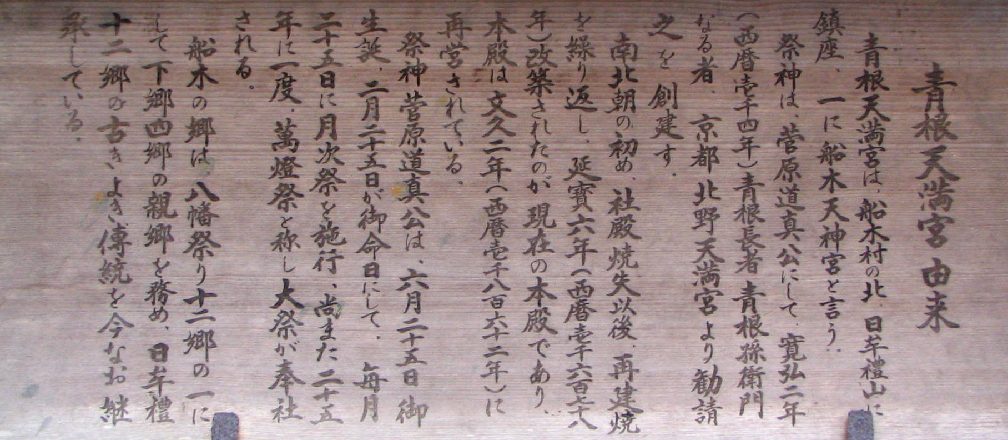 青根天満宮 由来
青根天満宮は、船木村の北、日牟禮山に
鎮座、一に船木天神宮と言う。
祭神は、菅原道真公にして、寛弘二年
（西暦壱千四年）青根長者 青根孫衛門
なる者 京都 北野天満宮より勧請
之を 創建す。
南北朝の初め、社殿焼失以後、再建焼
を繰り返し、延寶六年（西暦壱千六百七十八
年）改築されたのが 現在の本殿であり、
本殿は文久二年（西暦壱千八百六十二年）に
再営されている。
祭神 菅原道真公は、六月二十五日 御
生誕、二月二十五日が御命日にして、毎月
二十五日に月次祭を施行、尚また二十五
年に一度、萬燈祭と称し 大祭が奉社
される。
船木の郷は、八幡祭り十二郷の一に
して 下郷四郷の親郷を務め、日牟禮
十二郷の古きよき傳統を今なお継
承している。